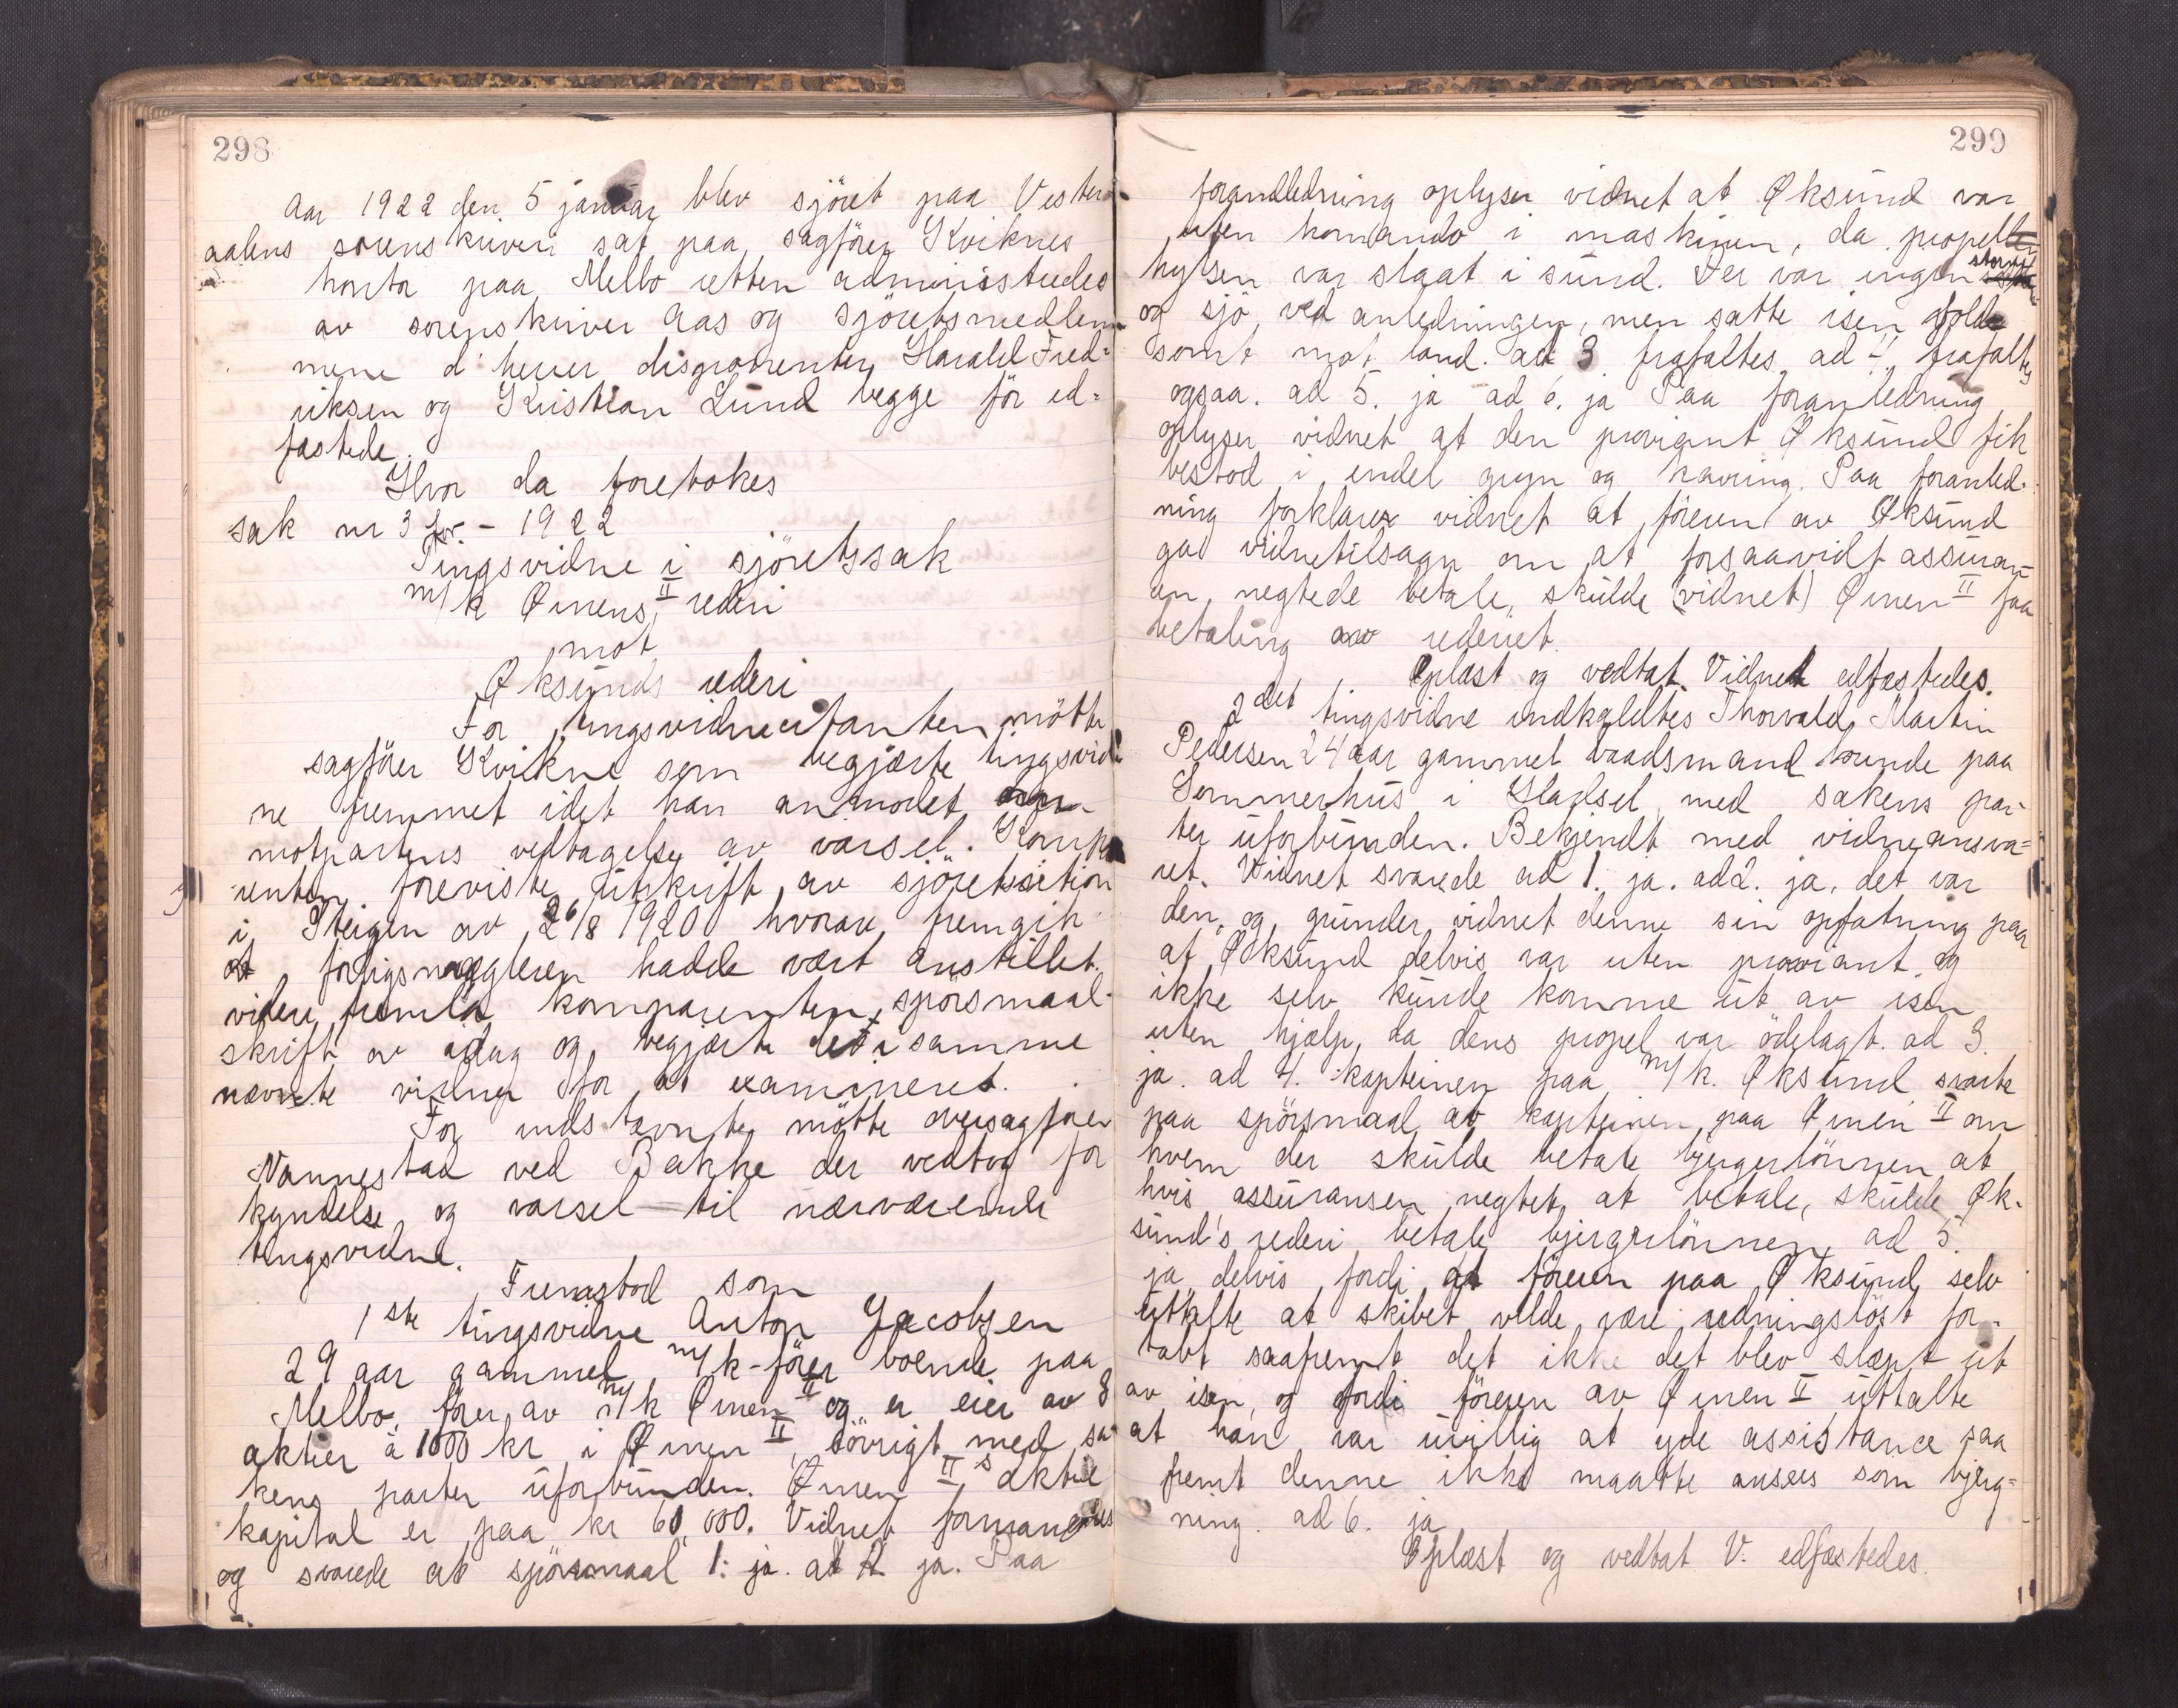 298
Aar 1922 den 5 januar blev sjöret paa Vester-
aalens sorenskriveri sat paa sagförer Kviknes
kontor paa Melbo retten administredes
av sorenskriver Aas og sjöretsmedlem-
mene d'herrer disponenter Harald Fred=
riksen og Kristian Lund begge för ed=
fæstede.
Hvor da foretokes
sak nr 3 - 1922
Tingsvidne i sjöretssak
m/k Ømens II rederi
mot
Øksunds rederi
For tingsvidneførelsen mötte
sagförer Kvikne som begjærte tingsvid-
ne fremmet idet han anmodet om
motpartens vedtagelse av varsel. Kompa
renten foreviste utskrift av sjöretssession
i Steigen av 26/8 1920 hvorav fremgik
at forligsmægleren hadde vært anstillet.
videre fremla komparenten spörsmaal-
skrift av idag og begjærte det i samme
nævnte vidner for at examineret.
For indstevnte mötte oversagförer
Nannestad ved Bakke der vedtog for
kyndelse og varsel til nærværende
tingsvidne.
Fremstod som
1ste tingsvidne Anton Jacobsen
29 aar gammel m/k-förer boende paa
Melbo, förer av m/k Ømen II og er eier av 8
aktier à 1000 kr i Ømen II, iövrigt med sa-
kens parter uforbunden. Ømen II s aktie
kapital er paa kr 60,000. Vidnet formanedes
og svarede at spörsmaal 1: ja. ad 2 ja. Paa
299
foranledning oplyser vidnet at Øksund var
uten komando i maskinen, da propell
hylsen var slaat i sund. Der var ingen storm
og sjö ved anledningen, men satte isen
somt mot land. ad 3 frafaltes ad 4 frafaltes
ogsaa. ad 5. ja ad 6. ja Paa foranledning
oplyser vidnet at den proviant Øksund fik
bestod i endel gryn og kavring. Paa foranled-
ning forklarer vidnet at föreren av Øksund
gav vidne tilsagn om at forsaavidt assuran-
cen negtede betale, skulde (vidnet) Ømen II faa
betaling av rederiet.
Oplæst og vedtat. Vidnet edfæstedes.
2det tingsvidne indkaldtes Thorvald Martin
Pedersen 24 aar gammel baadsmand boende paa
Sommerhus i Hadsel med sakens par-
ter uforbunden. Bekjendt med vidneansva=
ret. Vidnet svarede ad 1. ja. ad 2. ja, det var
den, og grunder vidnet denne sin opfatning paa
at Øksund delvis var uten proviant og
ikke selv kunde komme ut av isen
uten hjælp, da dens propel var ödelagt. ad 3.
ja. ad 4. kapteinen paa m/k. Øksund svarte
paa spörsmaal av kapteinen paa Ømen II om
hvem der skulde betale bjergerlönnen at
hvis assuransen negtet at betale, skulde Øk-
sund's rederi betale bjergerlönnen ad 5.
ja, delvis fordi at föreren paa Øksund selv
uttalte at skibet vilde være redningslöst for-
tabt saafremt det ikke det blev slæpt ut
av isen, og fordi föreren av Ømen II uttalte
at han var uvillig at yde assistance saa
fremt denne ikke maatte ansees som bjerg=
ning. ad 6. ja
Oplæst og vedtat V. edfæstedes.